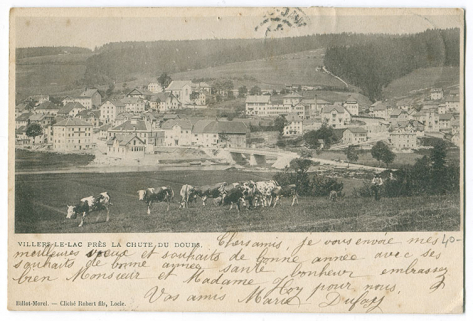 VILLERS-LE-LAC PRÈS LA CHUTE DU DOUBS.
Chers amis, je vous envoie mes
meilleurs voeux et souhaits de bonne année avec ses
souhaits de bonne année santé bonheur embrassez
bien Monsieur et Madame Hoy pour nous,
Vos amis Marie
Billot-Morel. — Cliché Robert fils, Locle.